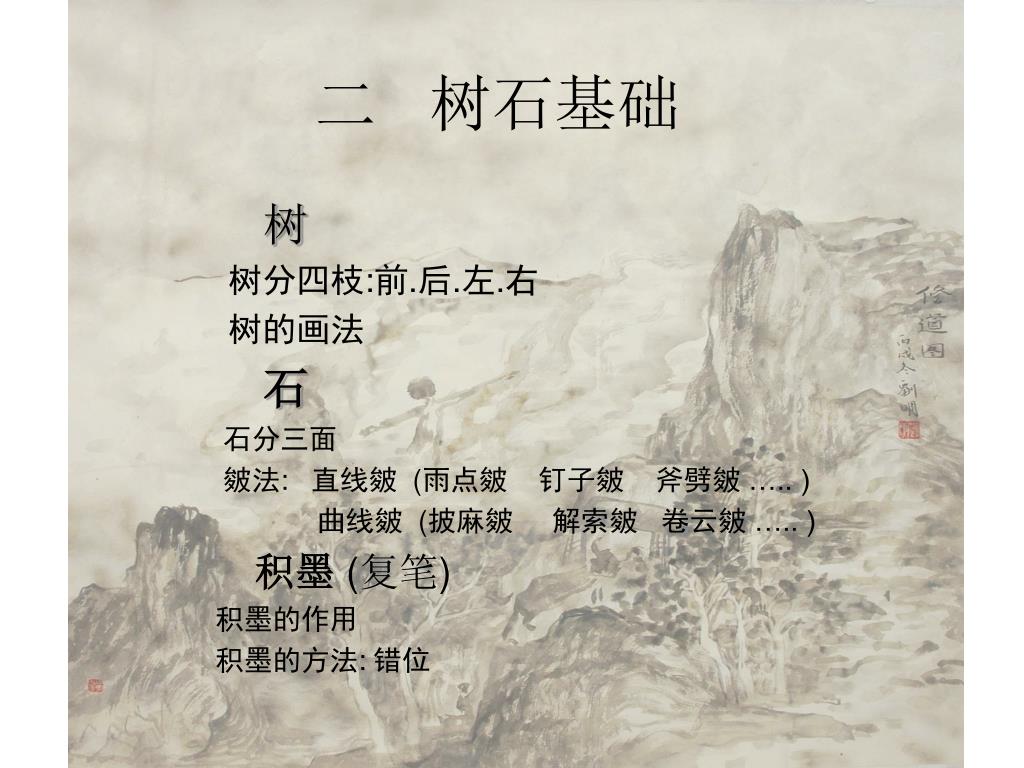 二 树石基础
树
树分四枝:前.后.左.右
树的画法
石
石分三面
皴法: 直线皴 (雨点皴 钉子皴 斧劈皴 ….. )
曲线皴 (披麻皴 解索皴 卷云皴 ….. )
积墨 (复笔)
积墨的作用
积墨的方法: 错位
修道图
丙戌冬劉明